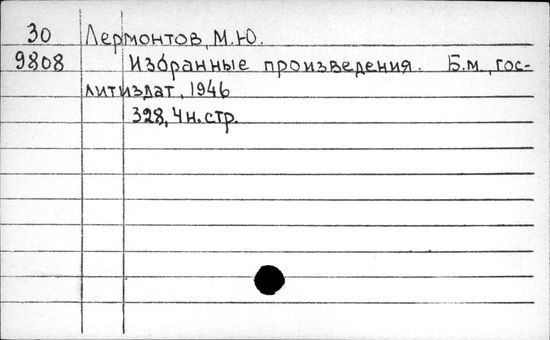 30 Лермонтов, М.Ю.
9808 Избранные произведения. Б.м., гос-
литиздат, 1946
328, 4 н. стр.